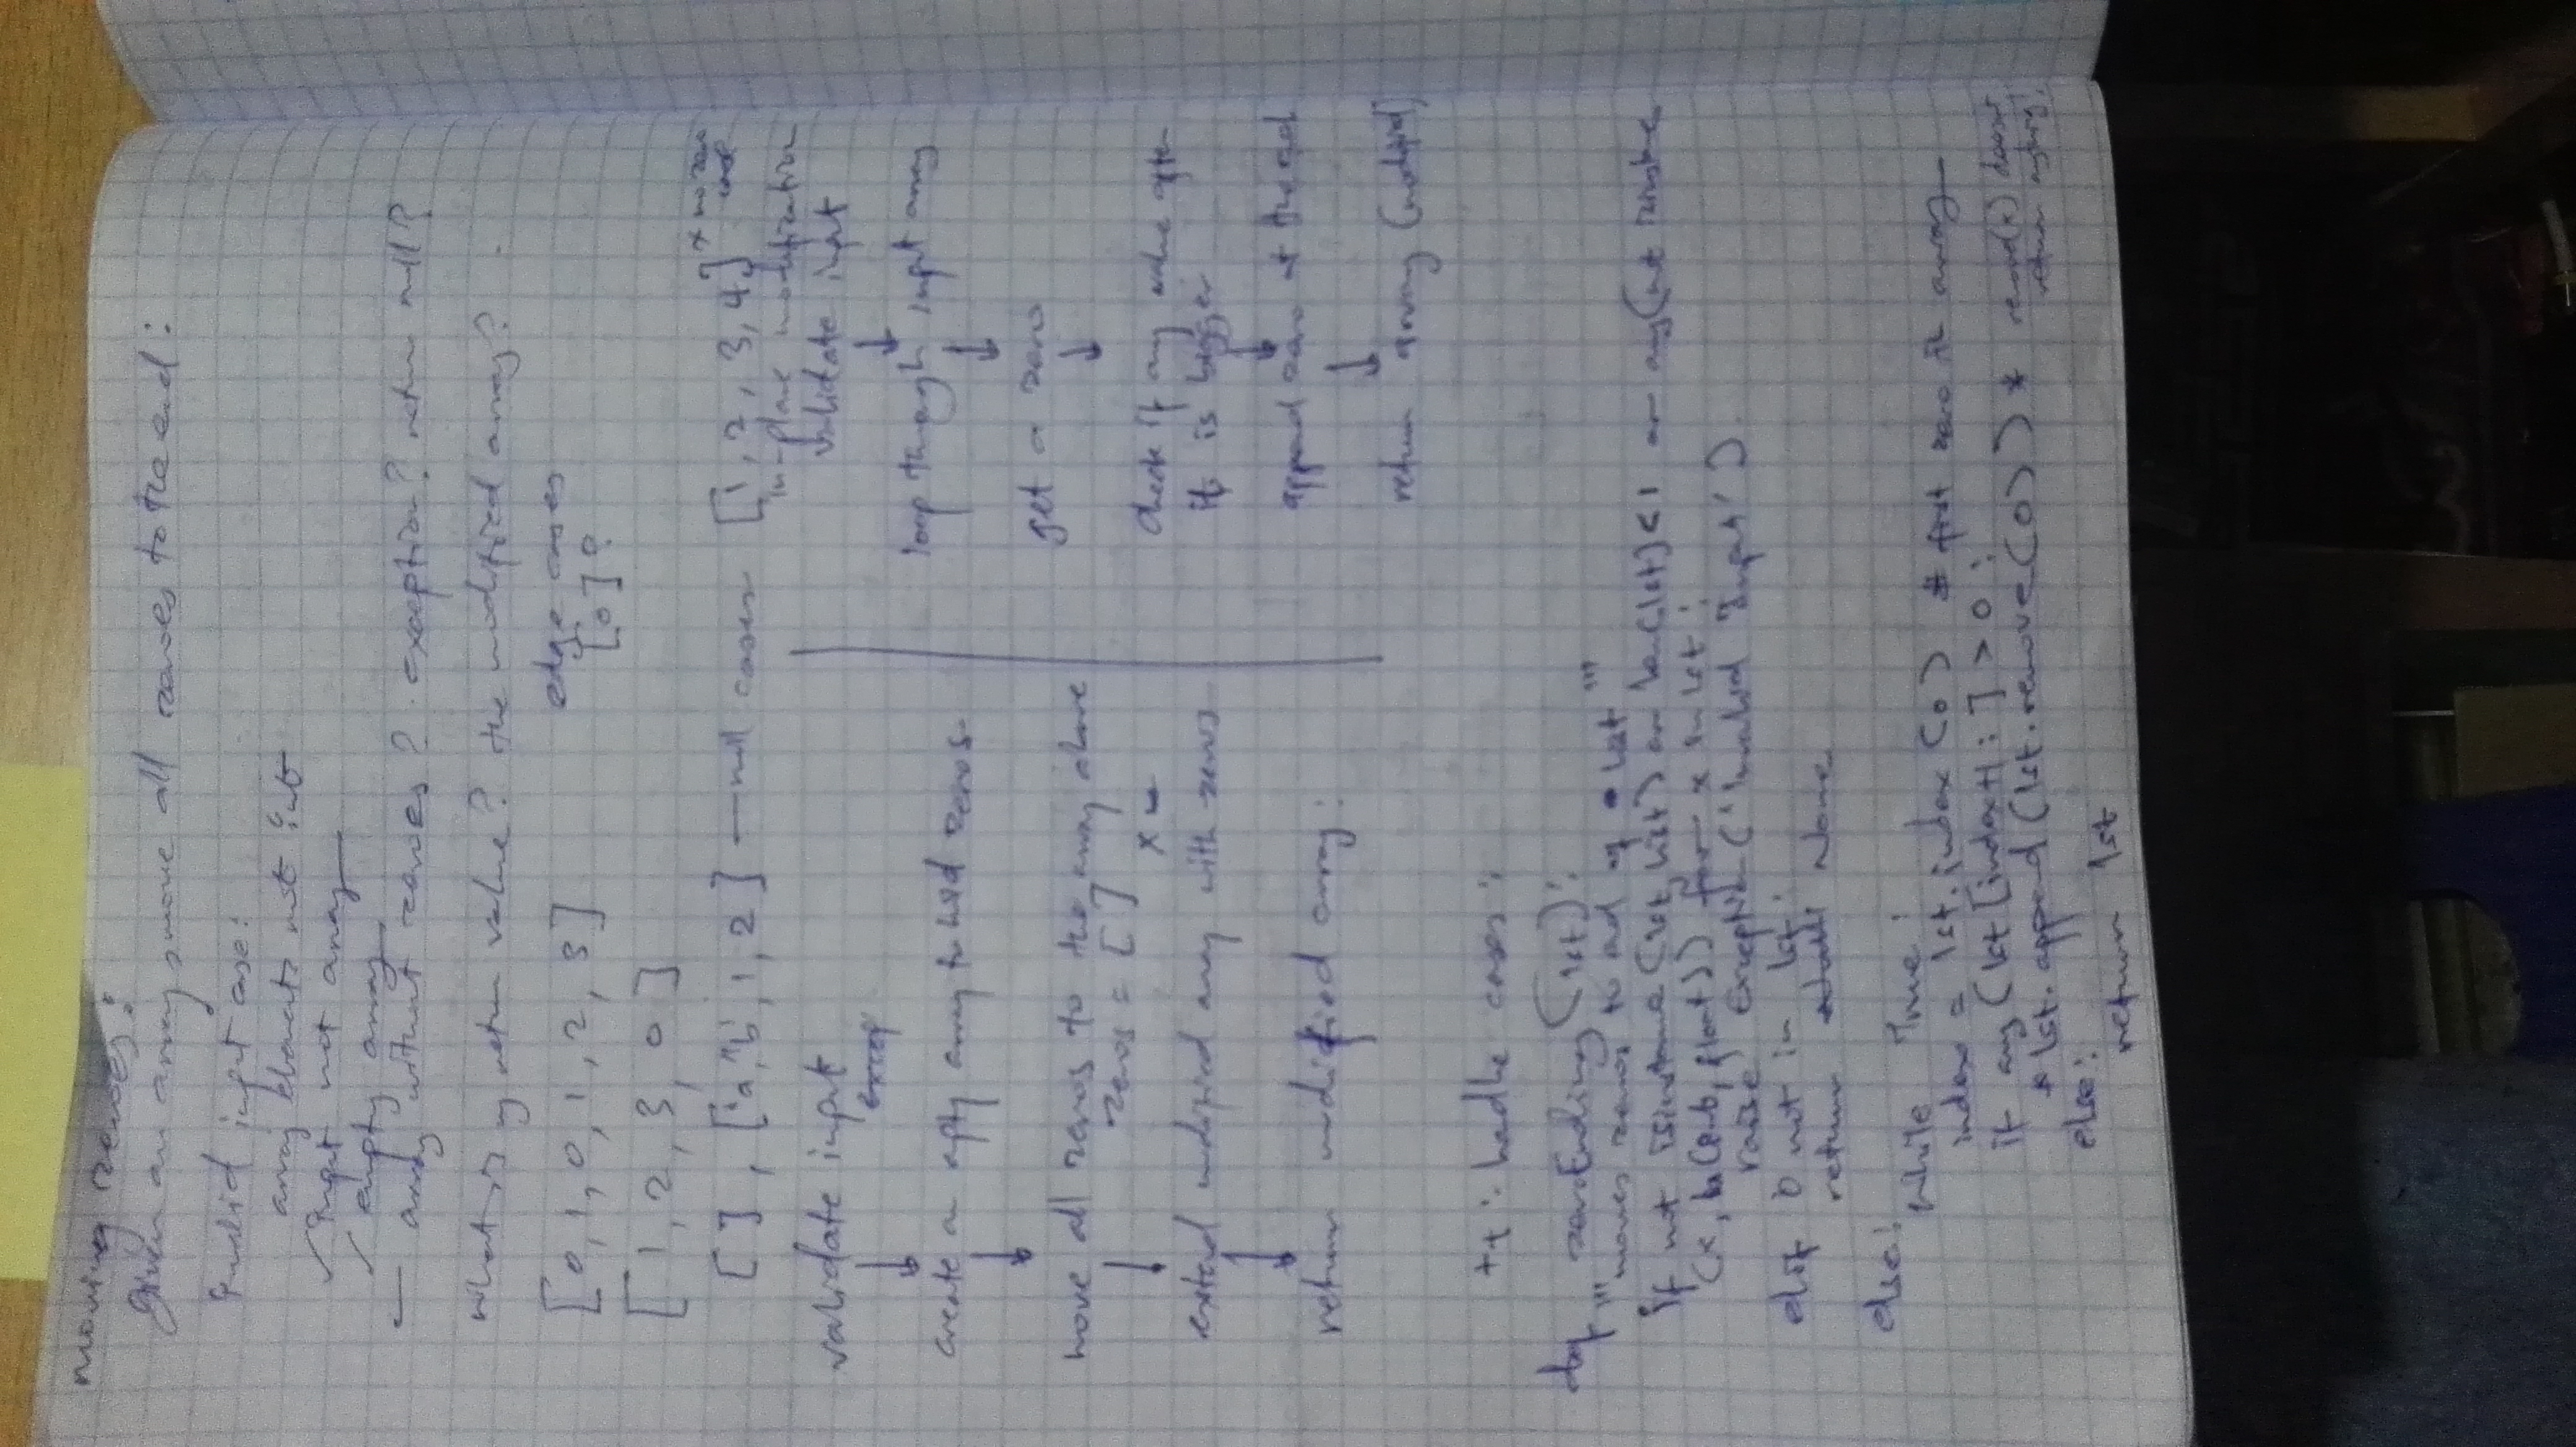 moving zeroes:
Given an array, move all zeroes to the end:
Invalid input case:
array elements not int
✓ Input not array
✓ empty array
— array without zeroes? exception? return null?
what is my return value? the modified array?
[0, 1, 0, 1, 2, 3]
edge cases
[0]?
[1, 2, 3, 0]
[ ], ['a','b', 1, 2] — null cases
[1, 2, 3, 4] * no zero
validate input
↓
create an epty array to hold zeros.
↓
move all zeros to the array above
zeros = [ ]
↓
extend modified array with zeros
↓
return modified array:
in-place modification
validate input
↓
loop through input array
↓
get a zero
↓
check if any value after
it is bigger
↓
append zero at the end
↓
return array (modified)
++ : handle cases:
def zeroEnding(lst):
"""moves zeros to end of list"""
if not isinstance(lst, list) or len(lst)<1 or any(not isinstance
(x, (int, float)) for x in lst:
raise Exception('Invalid Input')
elif 0 not in lst:
return None
else:
while True:
index = lst.index(0) # first zero in array
if any(lst[index+1:] > 0:
* lst.append(lst.remove(0)) * remove(x) doesnt
return anything!
else:
return lst